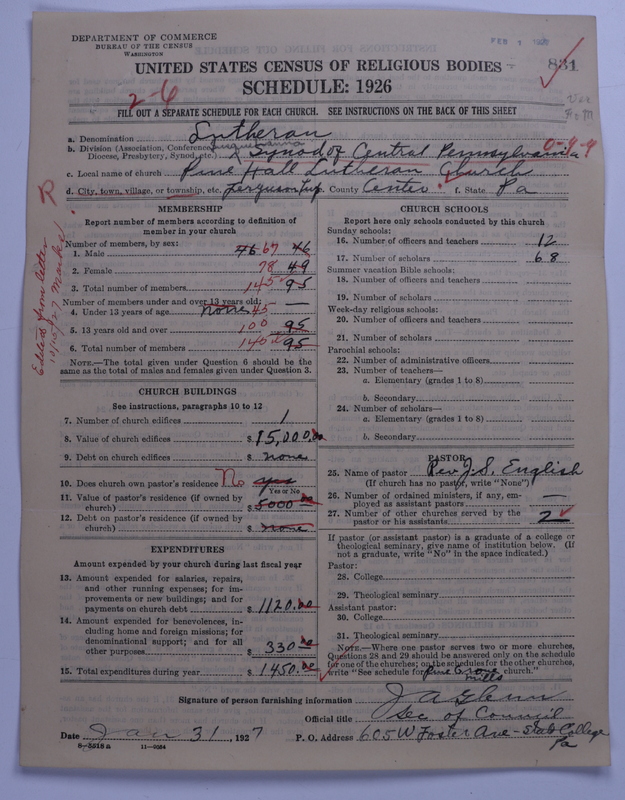 DEPARTMENT OF COMMERCE
BUREAU OF THE CENSUS
WASHINGTON
FEB 1 1927
UNITED STATES CENSUS OF RELIGIOUS BODIES
831
SCHEDULE: 1926
2-6
FILL OUT A SEPARATE SCHEDULE FOR EACH CHURCH. SEE INSTRUCTIONS ON THE BACK OF THIS SHEET
a. Denomination Lutheran
b. Division (Association, Conference, Susquehanna 0-9-9
Diocese, Presbytery, Synod, etc.) Synod of Central Pennsylvania
c. Local name of church Pine Hall Lutheran Church
d. City, town, village, or township, etc. Ferguson Twp. County Center f. State Pa
Edited from letter 10/10/27
MEMBERSHIP
Report number of members according to definition of member in your church
Number of members, by sex:
1. Male 46 67 46
2. Female 78 49
3. Total number of members 145 95
Number of members under and over 13 years old:
4. Under 13 years of age none 45 —
5. 13 years old and over 100 95
6. Total number of members 145 95
NOTE.—The total given under Question 6 should be the
same as the total of males and females given under Question 3.
CHURCH BUILDINGS
See instructions, paragraphs 10 to 12
7. Number of church edifices 1
8. Value of church edifices $ 15,000.00
9. Debt on church edifices $ none
10. Does church own pastor's residence No yes
Yes or No
11. Value of pastor's residence (if owned by
church) $ 5000.00
12. Debt on pastor's residence (if owned by
church) $ none
EXPENDITURES
Amount expended by your church during last fiscal year
13. Amount expended for salaries, repairs,
and other running expenses; for im-
provements or new buildings; and for
payments on church debt $ 1120.00
14. Amount expended for benevolences, in-
cluding home and foreign missions; for
denominational support; and for all
other purposes $ 330.00
15. Total expenditures during year $ 1450.00
CHURCH SCHOOLS
Report here only schools conducted by this church
Sunday schools:
16. Number of officers and teachers 12
17. Number of scholars 68
Summer vacation Bible schools:
18. Number of officers and teachers
19. Number of scholars
Week-day religious schools:
20. Number of officers and teachers
21. Number of scholars
Parochial schools:
22. Number of administrative officers
23. Number of teachers—
a. Elementary (grades 1 to 8)
b. Secondary
24. Number of scholars—
a. Elementary (grades 1 to 8)
b. Secondary
PASTOR
25. Name of pastor Rev. J.S. English
(If church has no pastor, write "None")
26. Number of ordained ministers, if any, em-
ployed as assistant pastors —
27. Number of other churches served by the
pastor or his assistants 2
If pastor (or assistant pastor) is a graduate of a college or
theological seminary, give name of institution below. (If
not a graduate, write "No" in the space indicated.)
Pastor:
28. College
29. Theological seminary
Assistant pastor:
30. College
31. Theological seminary
NOTE.—Where one pastor serves two or more churches,
Questions 28 and 29 should be answered only on the schedule
for one of the churches; on the schedules for the other churches,
write "See schedule for Pine Grove Mills church."
Signature of person furnishing information J A Glenn
Official title Sec of Council
Date Jan 31, 1927 P. O. Address 605 W Foster Ave - State College
Pa
8-3518 a 11-9584